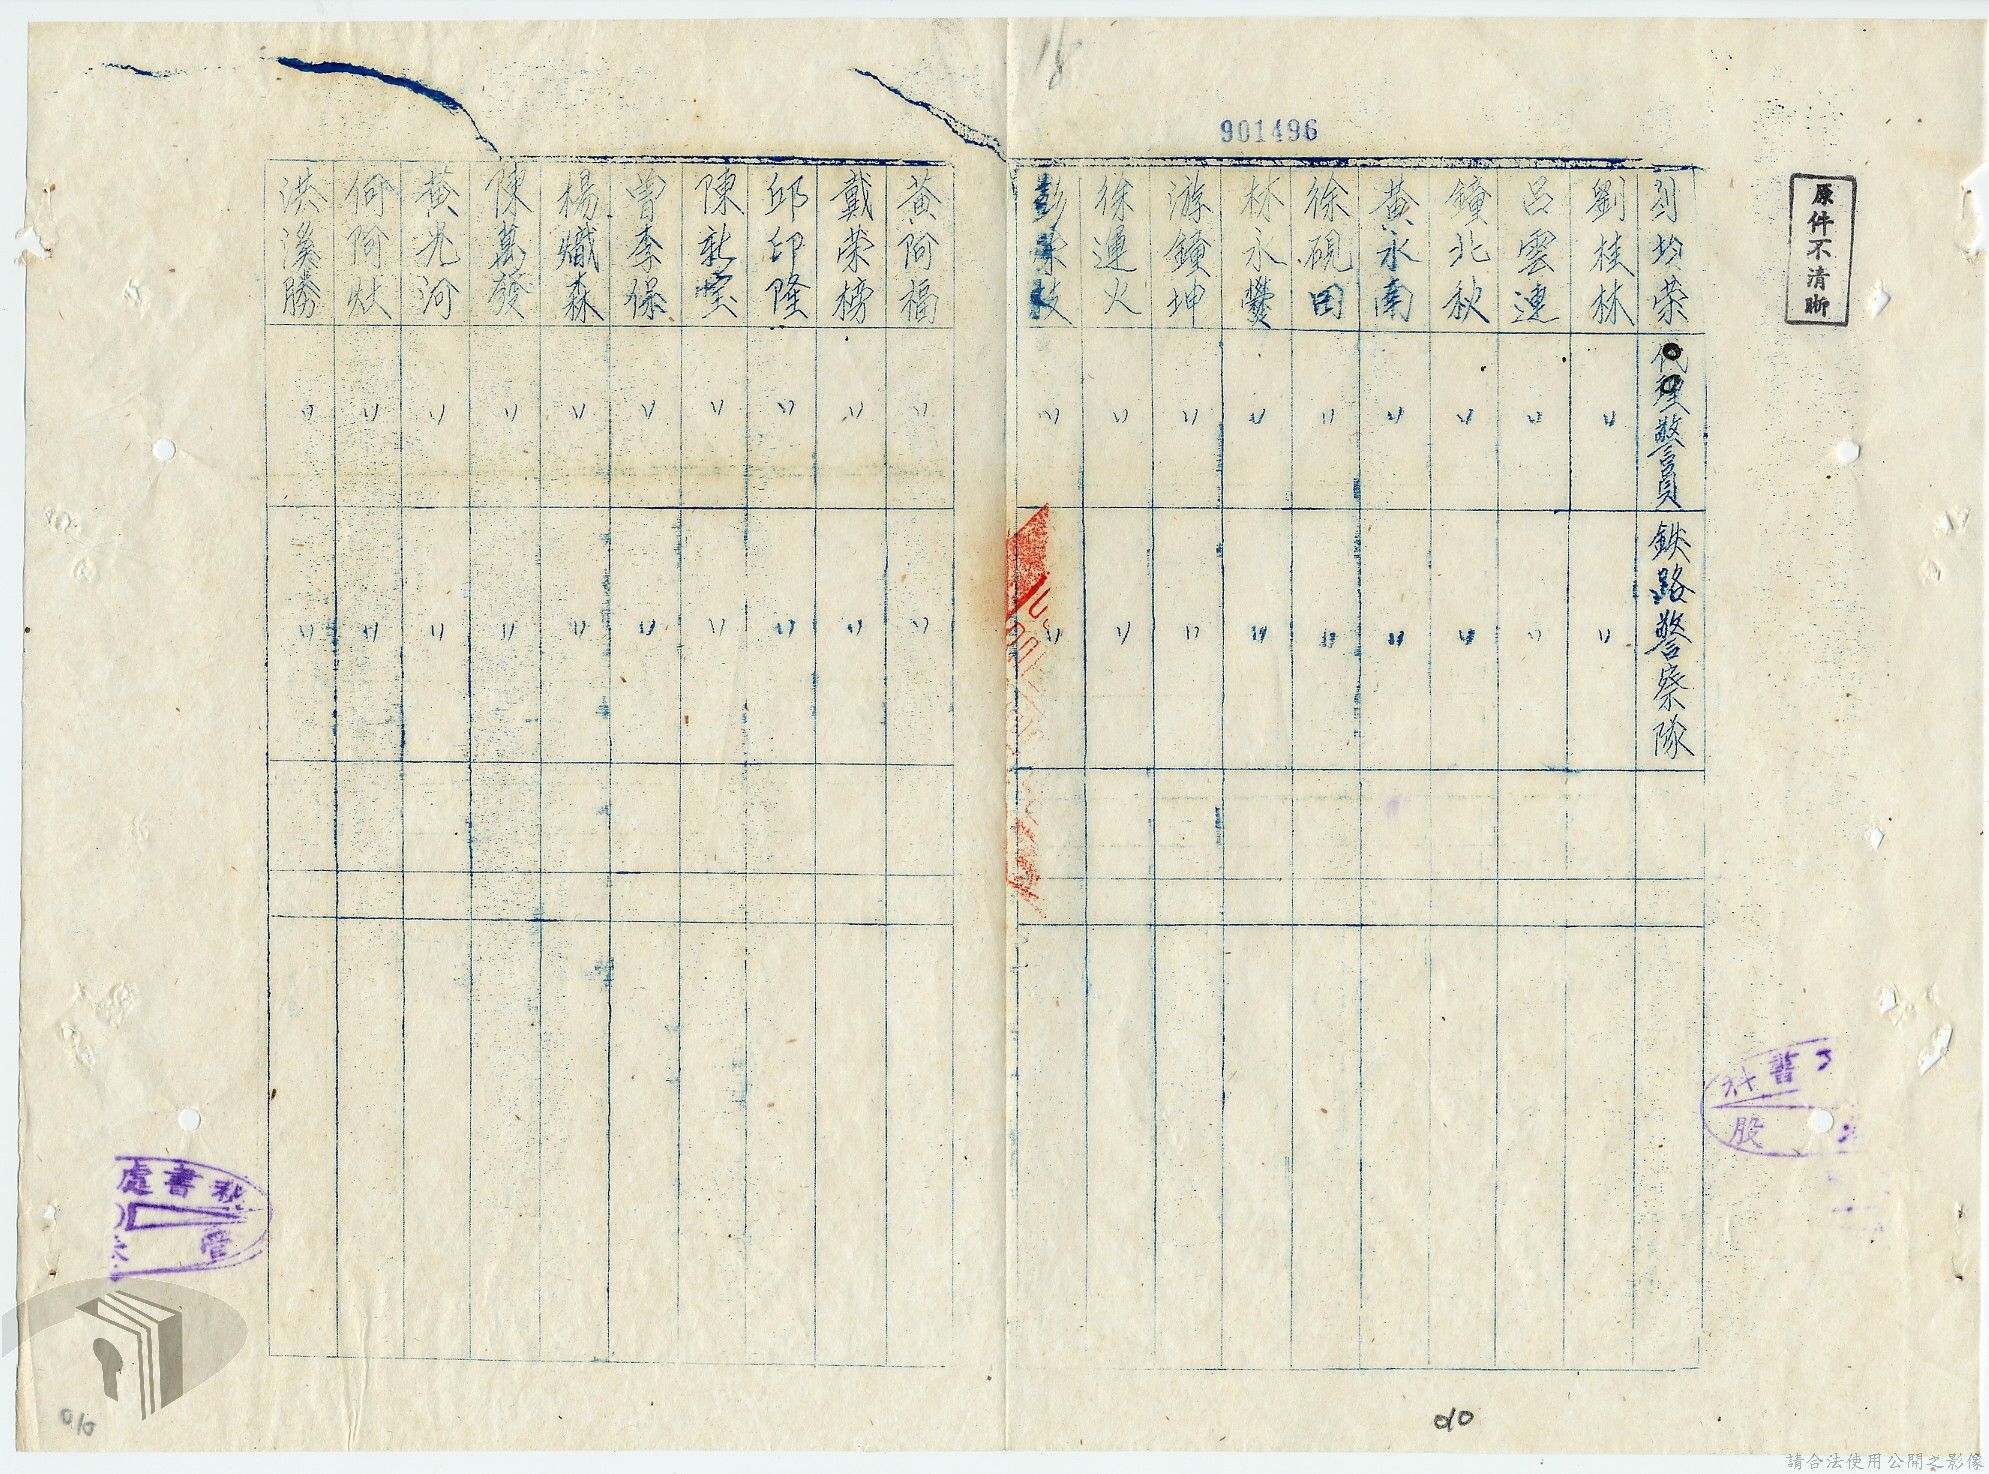 18
901496
原件不清晰
劉均榮 代理警員 鉄路警察隊
劉桂林 〃 〃
呂雲連 〃 〃
鐘北秋 〃 〃
黃永南 〃 〃
徐硯田 〃 〃
林永爨 〃 〃
游鐘坤 〃 〃
徐運火 〃 〃
彭 枝 〃 〃
黃阿福 〃 〃
戴榮榜 〃 〃
邱印隆 〃 〃
陳新寶 〃 〃
曾李保 〃 〃
楊熾森 〃 〃
陳萬發 〃 〃
黃光河 〃 〃
何阿灶 〃 〃
洪溪勝 〃 〃
科書
股
處書秘
管
010
010
請合法使用公開之影像